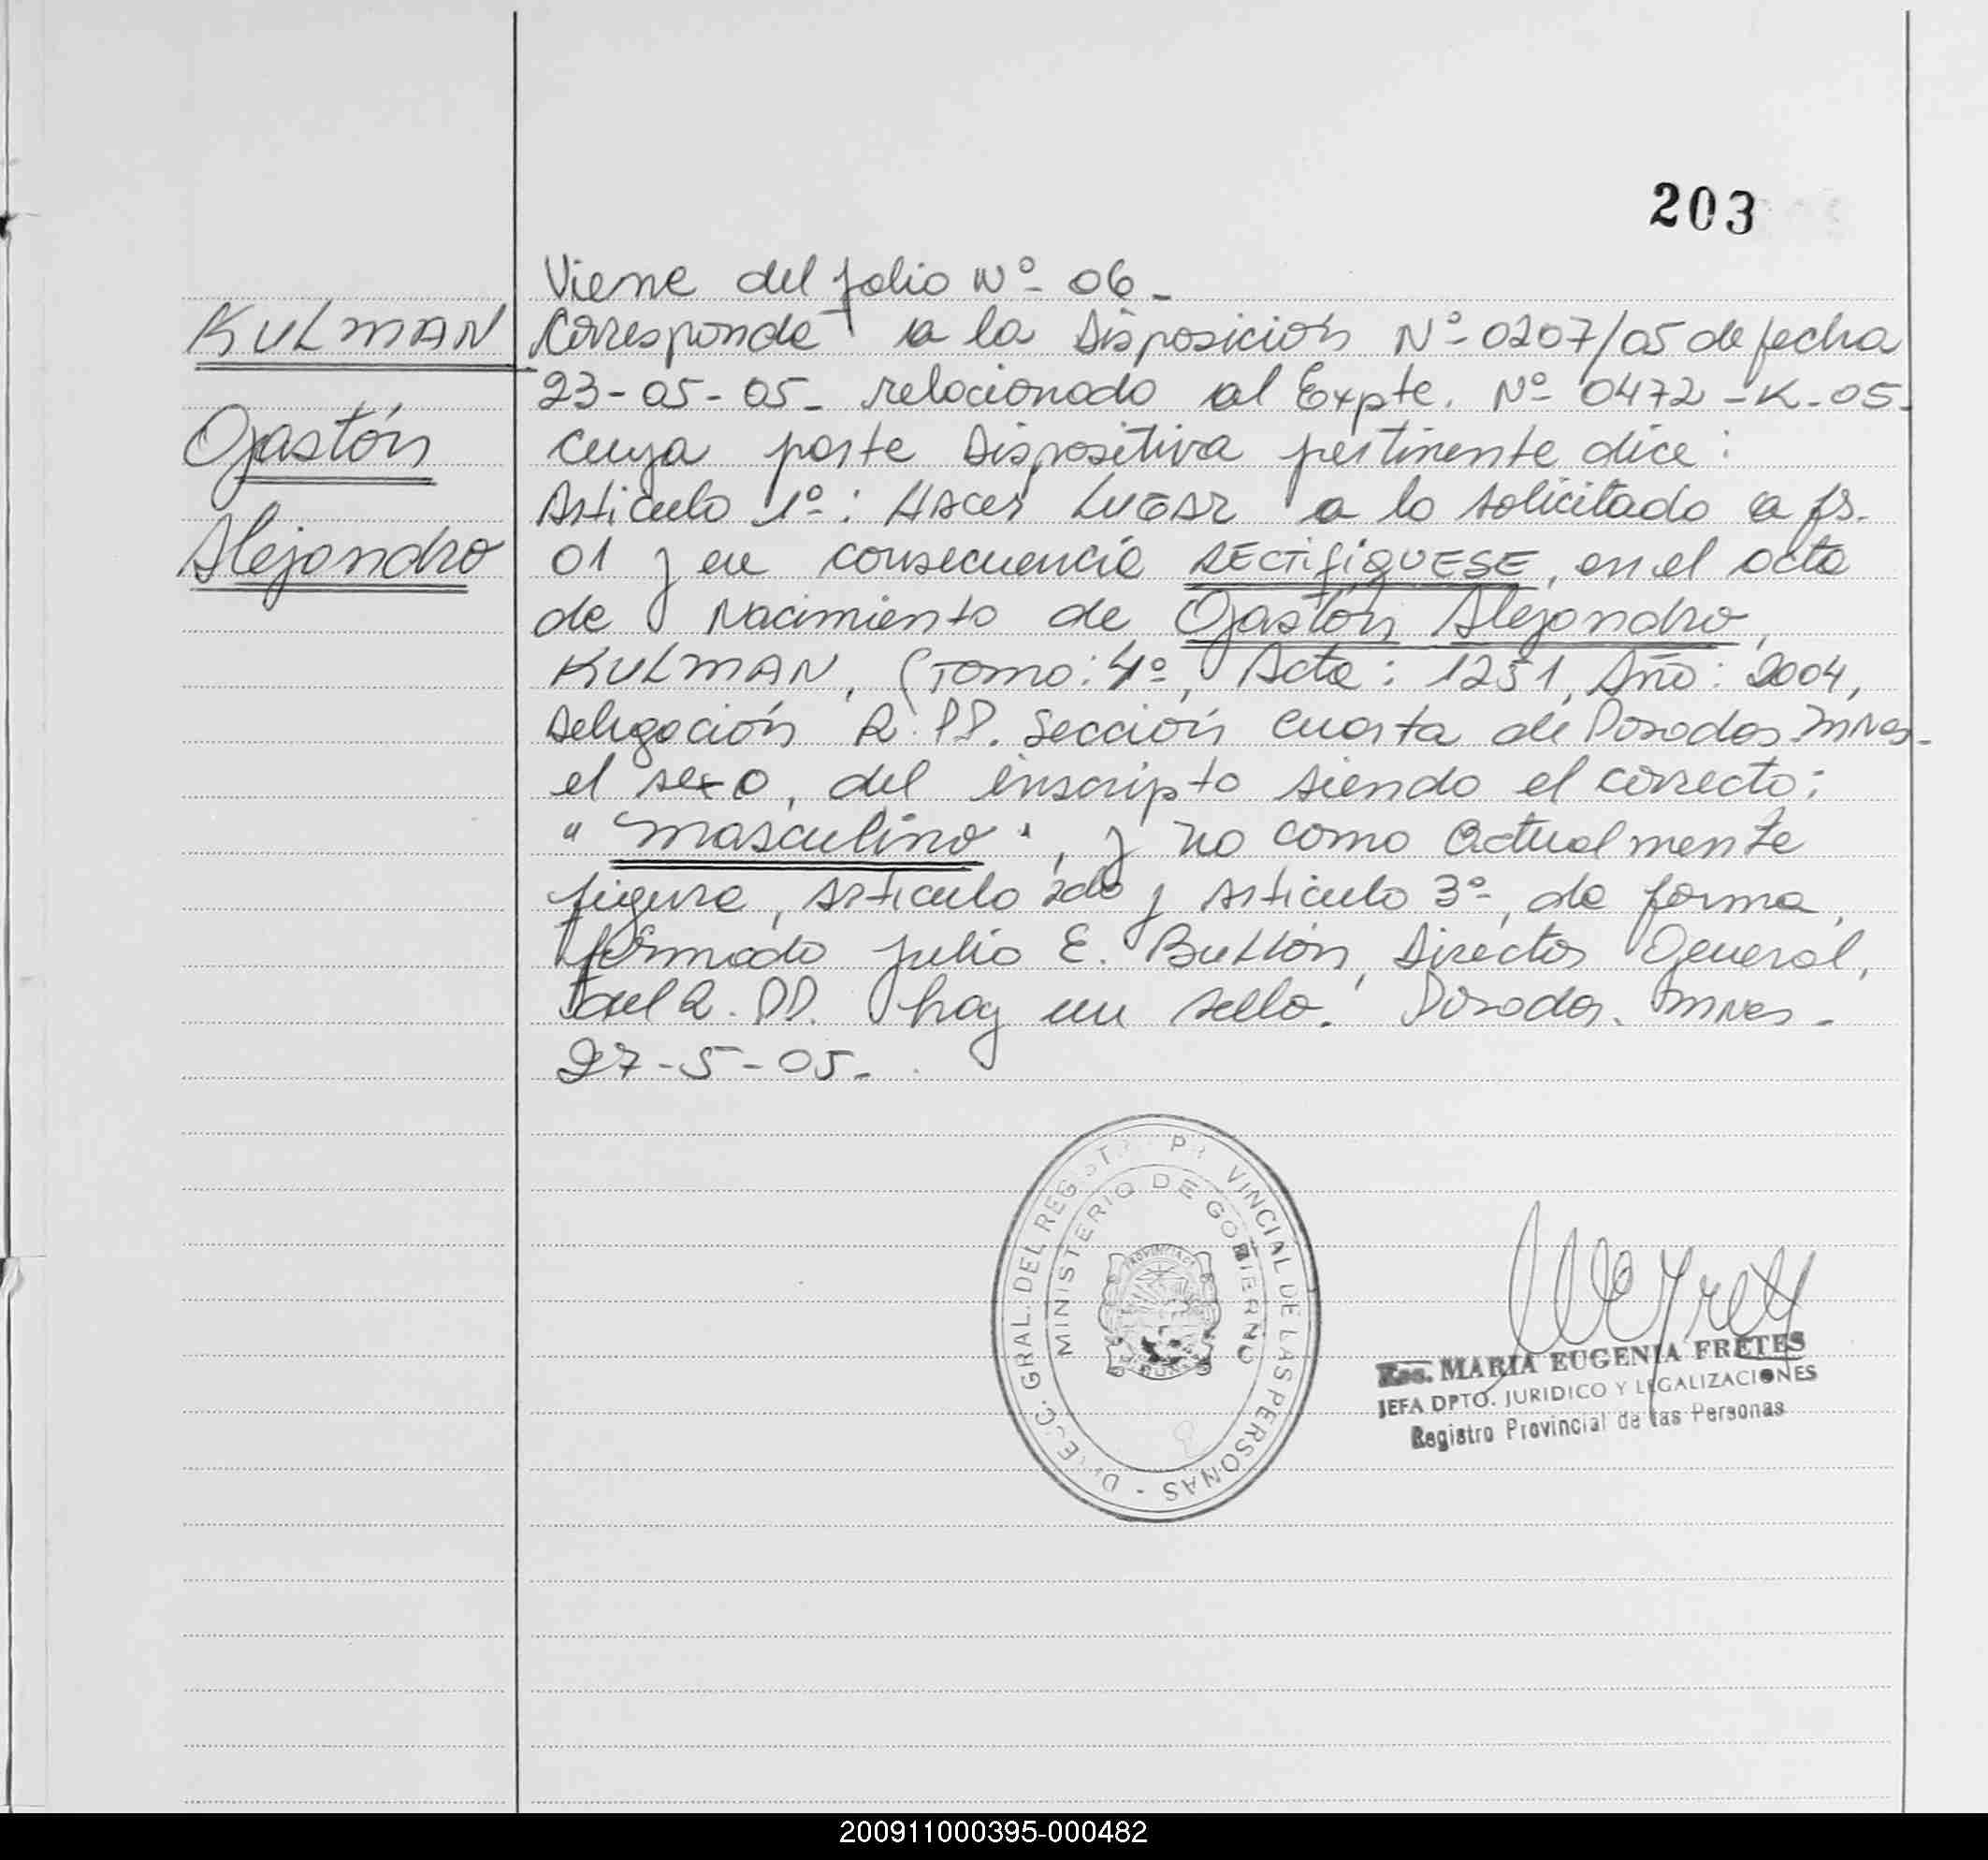 203
Viene del folio Nº 06-
KULMAN
Corresponde a la Disposición Nº 0207/05 de fecha
23-05-05- relacionado al Expte. Nº 0472-K-05-
Gastón
cuya parte Dispositiva pertinente dice:
Articulo 1º: HAcer LUGAR a lo solicitado a fs.
Alejandro
01 y en consecuencia RECTIFIQUESE, en el acta
de Nacimiento de Gastón Alejandro,
KULMAN, (Tomo: 4º, Acta: 1251, Año: 2004,
Delegación R.PP. Sección Cuarta de Posadas-Mnes-
el sexo, del inscripto siendo el correcto:
"masculino", y no como actualmente
figura, Articulo 2do y Articulo 3º, de forma,
firmado Julio E. Buttón, Director General,
del R.PP. hay un sello. Posadas. Mnes-
27-5-05-
DIRECC. GRAL. DEL REGISTRO PROVINCIAL DE LAS PERSONAS -
MINISTERIO DE GOBIERNO
Esc. MARIA EUGENIA FRETES
JEFA DPTO. JURIDICO Y LEGALIZACIONES
Registro Provincial de las Personas
200911000395-000482